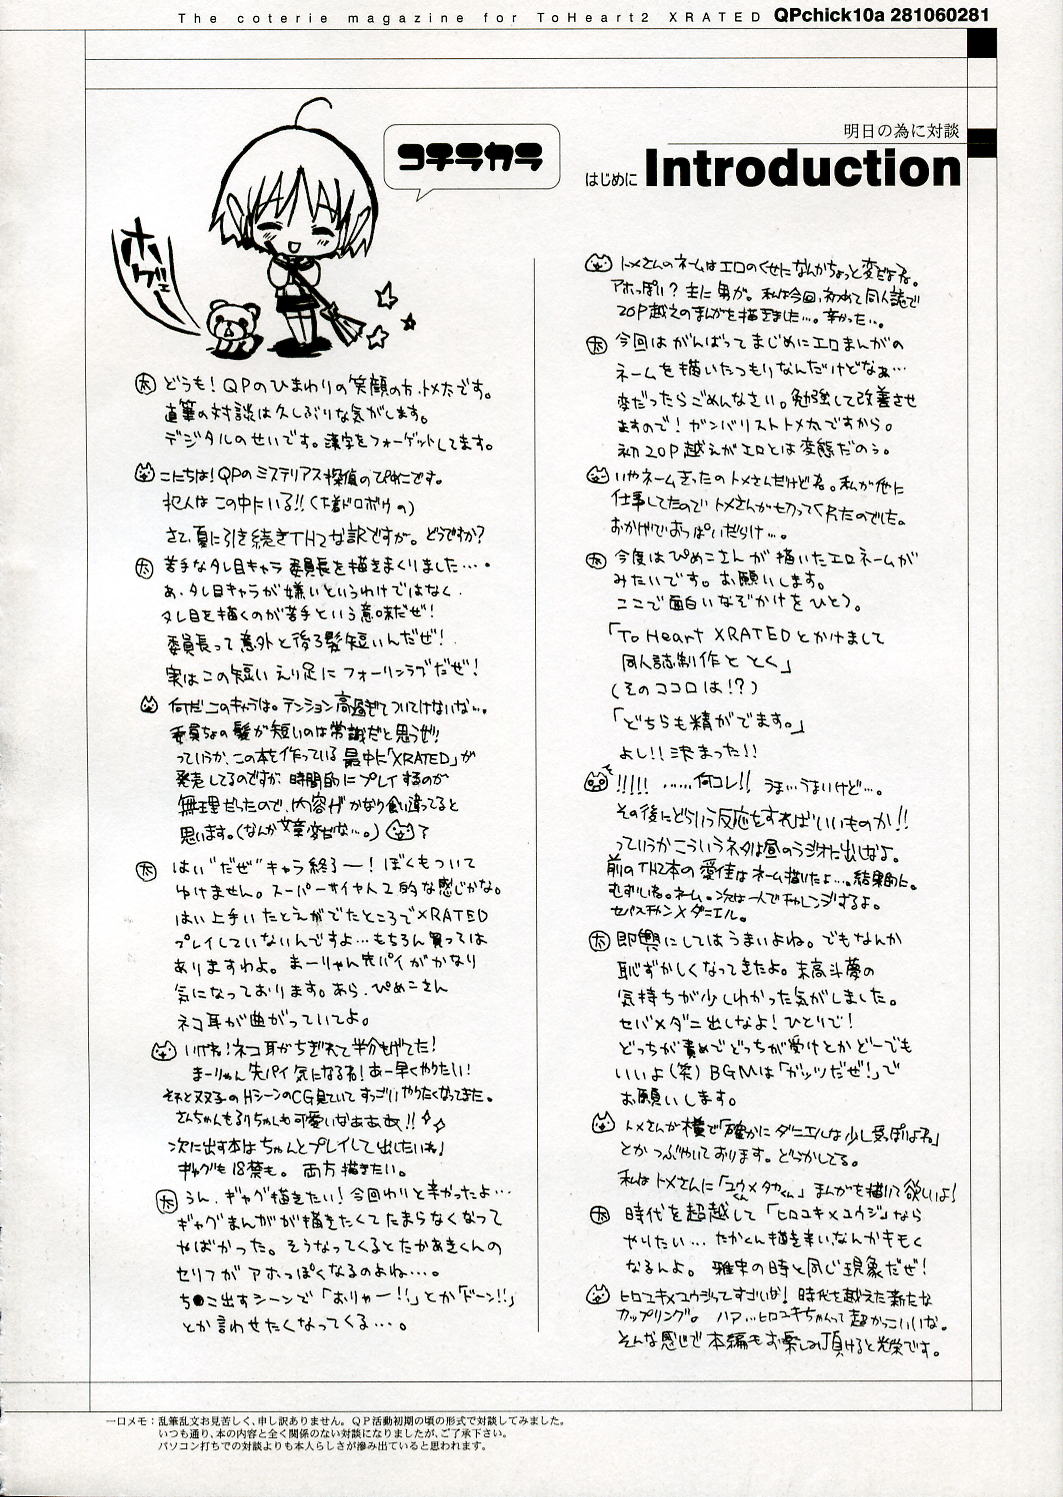 The coterie magazine for ToHeart2 XRATED QPchick10a 281060281
明日の為に対談
はじめに Introduction
コチラカラ
ホゲェー
太 どうも!QPのひまわりの笑顔の方、トメ太です。
直筆の対談は久しぶりな気がします。
デジタルのせいです。漢字をフォーゲットしてます。
こにちは!QPのミステリアス探偵のぴめこです。
犯人はこの中にいる!!(下着ドロボウの)
さて、夏に引き続きTH2な訳ですが。どうですか?
太 苦手なタレ目キャラ委員長を描きまくりました…。
あ、タレ目キャラが嫌いというわけではなく、
タレ目を描くのが苦手という意味だぜ!
委員長って意外と後ろ髪短いんだぜ!
実はこの短いえり足にフォーリンラブだぜ!
何だこのキャラは。テンション高過ぎてついてけないな…。
委員ちょの髪が短いのは常識だと思うぜ!!
っていうか、この本を作っている最中に「XRATED」が
発売してるのですが、時間的にプレイするのが
無理だったので、内容がかなり食い違ってると
思います。(なんか文章変だな…。)?
太 はい"だぜ"キャラ終了ー!ぼくもついて
ゆけません。スーパーサイヤ人2的な感じかな。
はい上手いたとえがでたところでXRATED
プレイしていないんですよ…もちろん買っては
ありますわよ。まーりゃん先パイがかなり
気になっております。あら、ぴめこさん
ネコ耳が曲がっていてよ。
いけね!ネコ耳がちぎれて半分もげてた!
まーりゃん先パイ気になるね!あー早くやりたい!
それと双子のHシーンのCG見ていてすっごいやりたくなってきた。
さんちゃんもるりちゃんも可愛いなぁぁぁぁ!!
次に出す本はちゃんとプレイして出したいね」
ギャグも18禁も。両方描きたい。
太 うん、ギャグ描きたい!今回わりと辛かったよ…
ギャグまんがが描きたくてたまらなくなって
やばかった。そうなってくるとたかあきくんの
セリフがアホっぽくなるのよね…。
ち●こ出すシーンで「おりゃー!!」とか「ドーン!!」
とか言わせたくなってくる…。
トメさんのネームはエロのくせになんかちょっと変だよね。
アホっぽい?主に男が。私は今回、初めて同人誌で
20P越えのまんがを描きました…。辛かった…。
太 今回はがんばってまじめにエロまんがの
ネームを描いたつもりなんだけどなぁ…
変だったらごめんなさい。勉強して改善させ
ますので!ガンバリストトメ太ですから。
初20P越えがエロとは変態だのう。
いやネームきったのトメさんだけどね。私が他に
仕事してたのでトメさんが切ってくれたのでした。
おかげでおっぱいだらけ…。
太 今度はぴめこさんが描いたエロネームが
みたいです。お願いします。
ここで面白いなぞかけをひとつ。
「To Heart XRATEDとかけまして
同人誌制作ととく」
(そのココロは!?)
「どちらも精がでます。」
よし!!決まった!!
!!!!! ……何コレ!! うま…うまいけど…。
その後にどういう反応をすればいいものか!!
っていうかこういうネタは昼のラジオに出しなよ。
前のTH2本の愛佳はネーム描いたよ…。結果的に。
むずいね。ネーム。次は一人でチャレンジするよ。
セバスチャン×ダニエル。
太 即興にしてはうまいよね。でもなんか
恥ずかしくなってきたよ。末高斗夢の
気持ちが少しわかった気がしました。
セバ×ダニ出しなよ!ひとりで!
どっちが責めでどっちが受けとかどーでも
いいよ(笑)BGMは「ガッツだぜ!」で
お願いします。
トメさんが横で「確かにダニエルは少し受っぽいよね」
とかつぶやいております。どうかしてる。
私はトメさんに「ユウくん×タカくん」まんがを描いて欲しいよ!
太 時代を超越して「ヒロユキ×ユウジ」なら
やりたい…たかくん描き辛い、なんかキモく
なるんよ。雅史の時と同じ現象だぜ!
ヒロユキ×ユウジってすごいな!時代を越えた新たな
カップリング。ハァ…ヒロユキちゃんって超かっこいいな。
そんな感じで本編もお楽しみ頂けると光栄です。
一口メモ:乱筆乱文お見苦しく、申し訳ありません。QP活動初期の頃の形式で対談してみました。
いつも通り、本の内容と全く関係のない対談になりましたが、ご了承下さい。
パソコン打ちでの対談よりも本人らしさが滲み出ていると思われます。